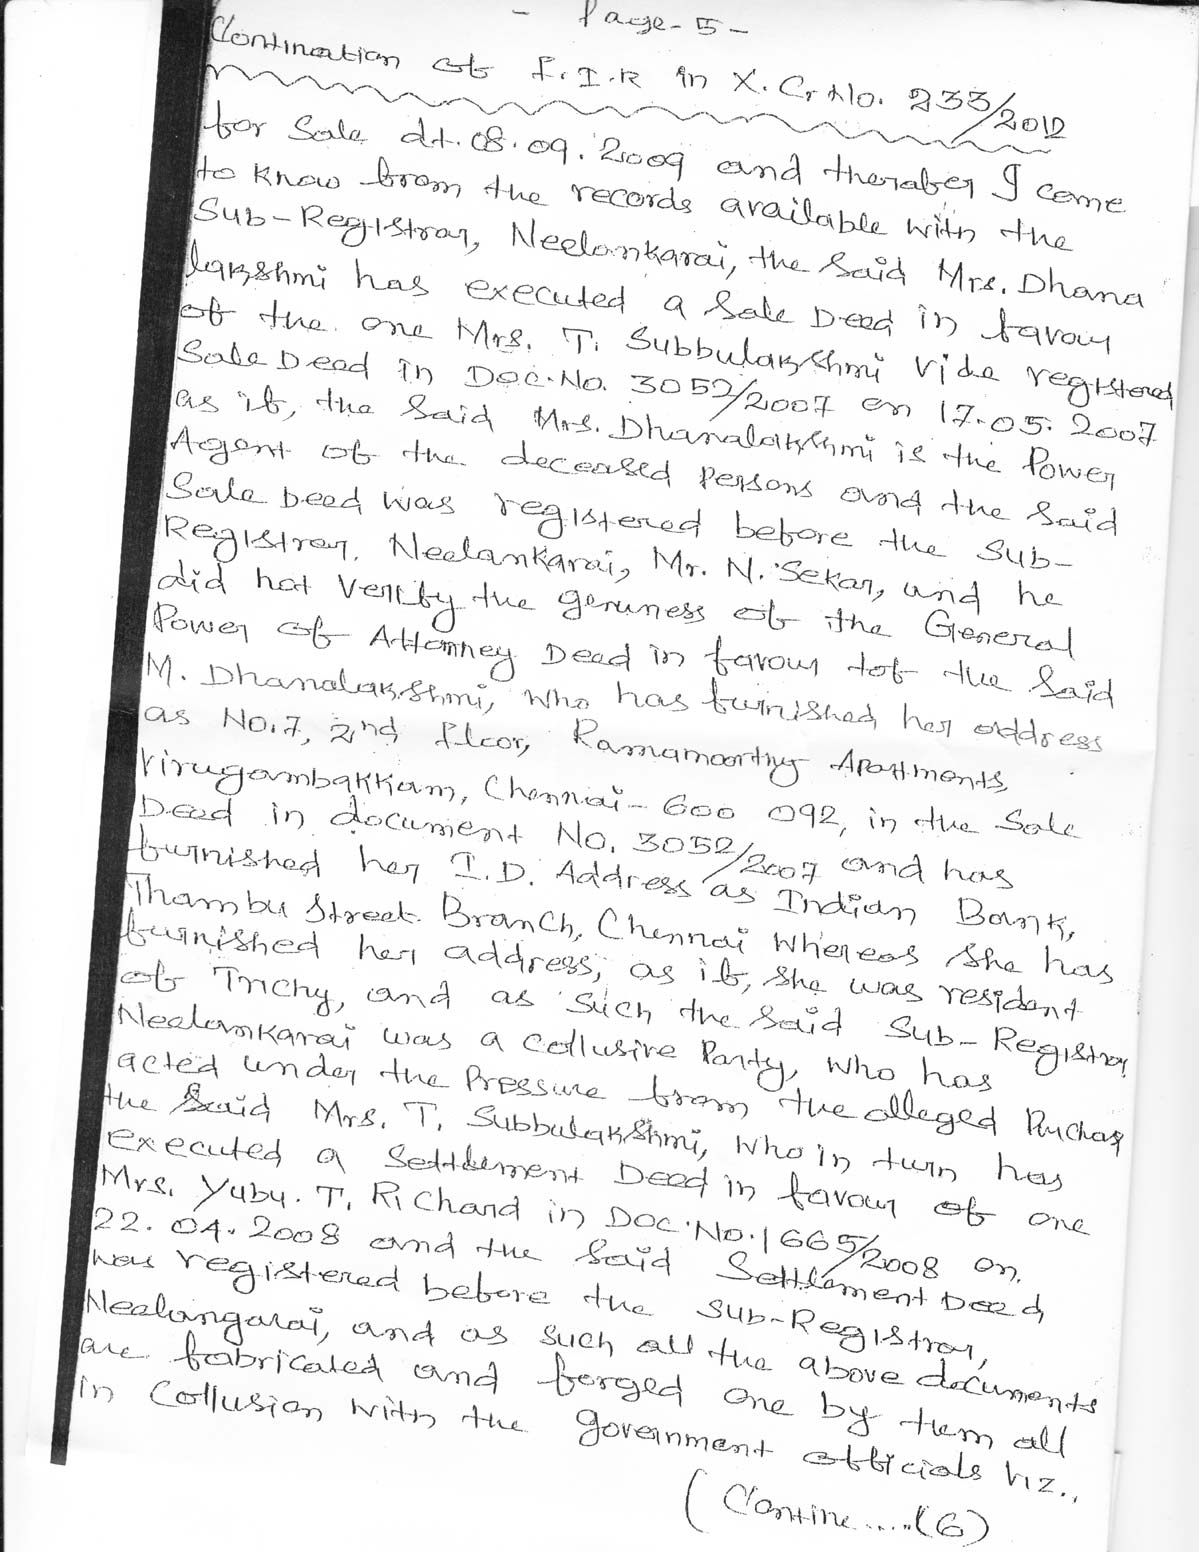 - Page - 5 -
Contination of F.I.R in X. Cr. No. 233/2012
for Sale dt. 08.09.2009 and therafer I come
to know from the records available with the
Sub-Registrar, Neelankarai, the Said Mrs. Dhana
lakshmi has executed a Sale Deed in favour
of the one Mrs. T. Subbulakshmi vide registered
Sale Deed in Doc.No. 3052/2007 on 17.05.2007
as if, the Said Mrs. Dhanalakshmi is the Power
Agent of the deceased persons and the Said
Sale Deed was registered before the Sub-
Registrar, Neelankarai, Mr. N. Sekar, and he
did not Verify the genuness of the General
Power of Attorney Deed in favour tof the Said
M. Dhanalakshmi, who has furnished her address
as No.7, 2nd floor, Ramamoorthy Apartments,
Virugambakkam, Chennai-600 092, in the Sale
Deed in document No. 3052/2007 and has
furnished her I.D. Address as Indian Bank,
Thambu Street Branch, Chennai whereas she has
furnished her address, as if, she was resident
of Trichy, and as such the Said Sub-Registrar
Neelankarai was a collusive Party, who has
acted under the Pressure from the alleged Purchas
the Said Mrs. T. Subbulakshmi, who in turn has
executed a Settlement Deed in favour of one
Mrs. Yuby. T. Richard in Doc.No. 1665/2008 on
22.04.2008 and the Said Settlement Deed
was registered before the Sub-Registrar,
Neelangarai, and as such all the above documents
are fabricated and forged one by them all
in Collusion with the government officials viz.,
(Contine.....(6)